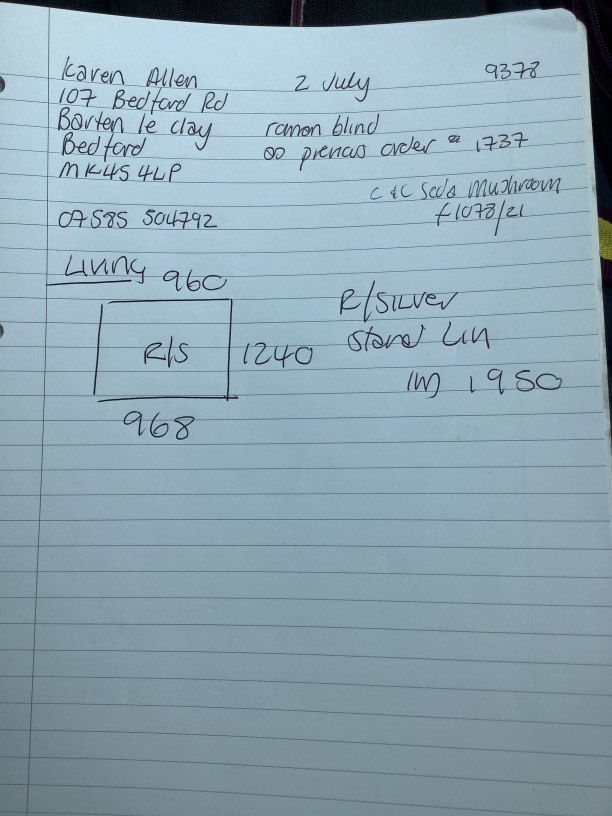 Karen Allen 2 July 9378
107 Bedford Rd
Barten le clay roman blind
Bedford oo prenas order 1737
MK45 4LP
C & C Seda Mushroom
07585 504792 F1078/21
Living 960
R/SILVER
R/S 1240 Stand Lin
1m 1950
968